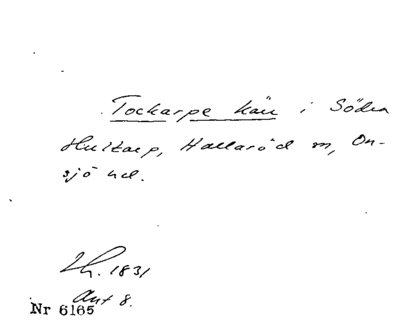 Tockarpe kärr i Södra
Hultarp, Hallaröd sn, On-
sjö hd.
Lh. 1831
Akt 8.
Nr 6165